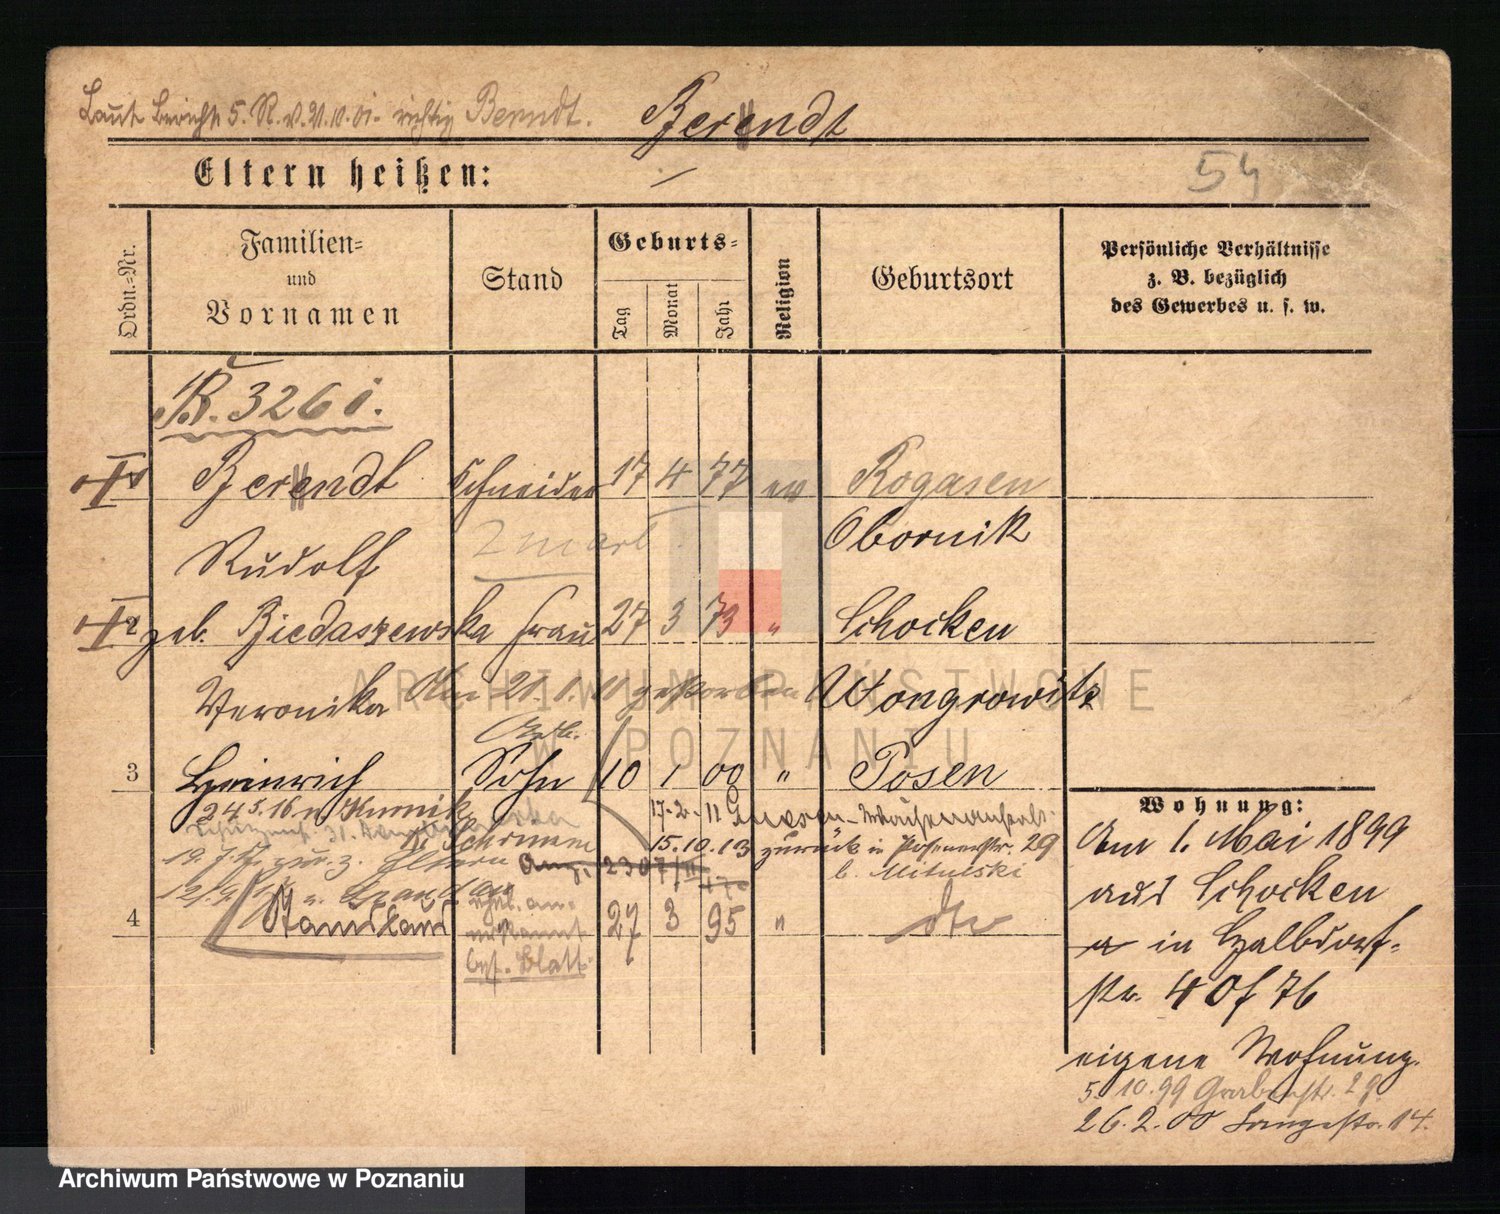 Laut Bericht 5. R. v. 21.10.01. richtig Berndt.
Berendt
Eltern heißen: /
54
Ordn.=Nr.
Familien=
und
Vornamen
Stand
Geburts=
Tag
Monat
Jahr
Religion
Geburtsort
Persönliche Verhältnisse
z. B. bezüglich
des Gewerbes u. s. w.
R. 3261.
1 Berendt Schneider 17 4 77 ev Rogasen
Rudolf Obornik
2 geb. Biedaszewska Frau 27 3 73 " Schocken
Veronika Am 21.1.11 gestorben Wongrowitz
3 Heinrich Sohn 10 1 00 " Posen
24.5.16 n Kurnik
17.2.11
Schrimm
15.10.13 zurück in Posenerstr. 29
b. Mitulski
19.7. zur. z. Eltern
4 27 3 95 " dto
Blatt
Wohnung:
Am 1. Mai 1899
aus Schocken
in Halbdorf=
str. 40 f 76
eigene Wohnung.
5.10.99 Grabenstr. 29.
26.2.00 Langestr. 14.
ARCHIWUM PAŃSTWOWE
W POZNANIU
Archiwum Państwowe w Poznaniu